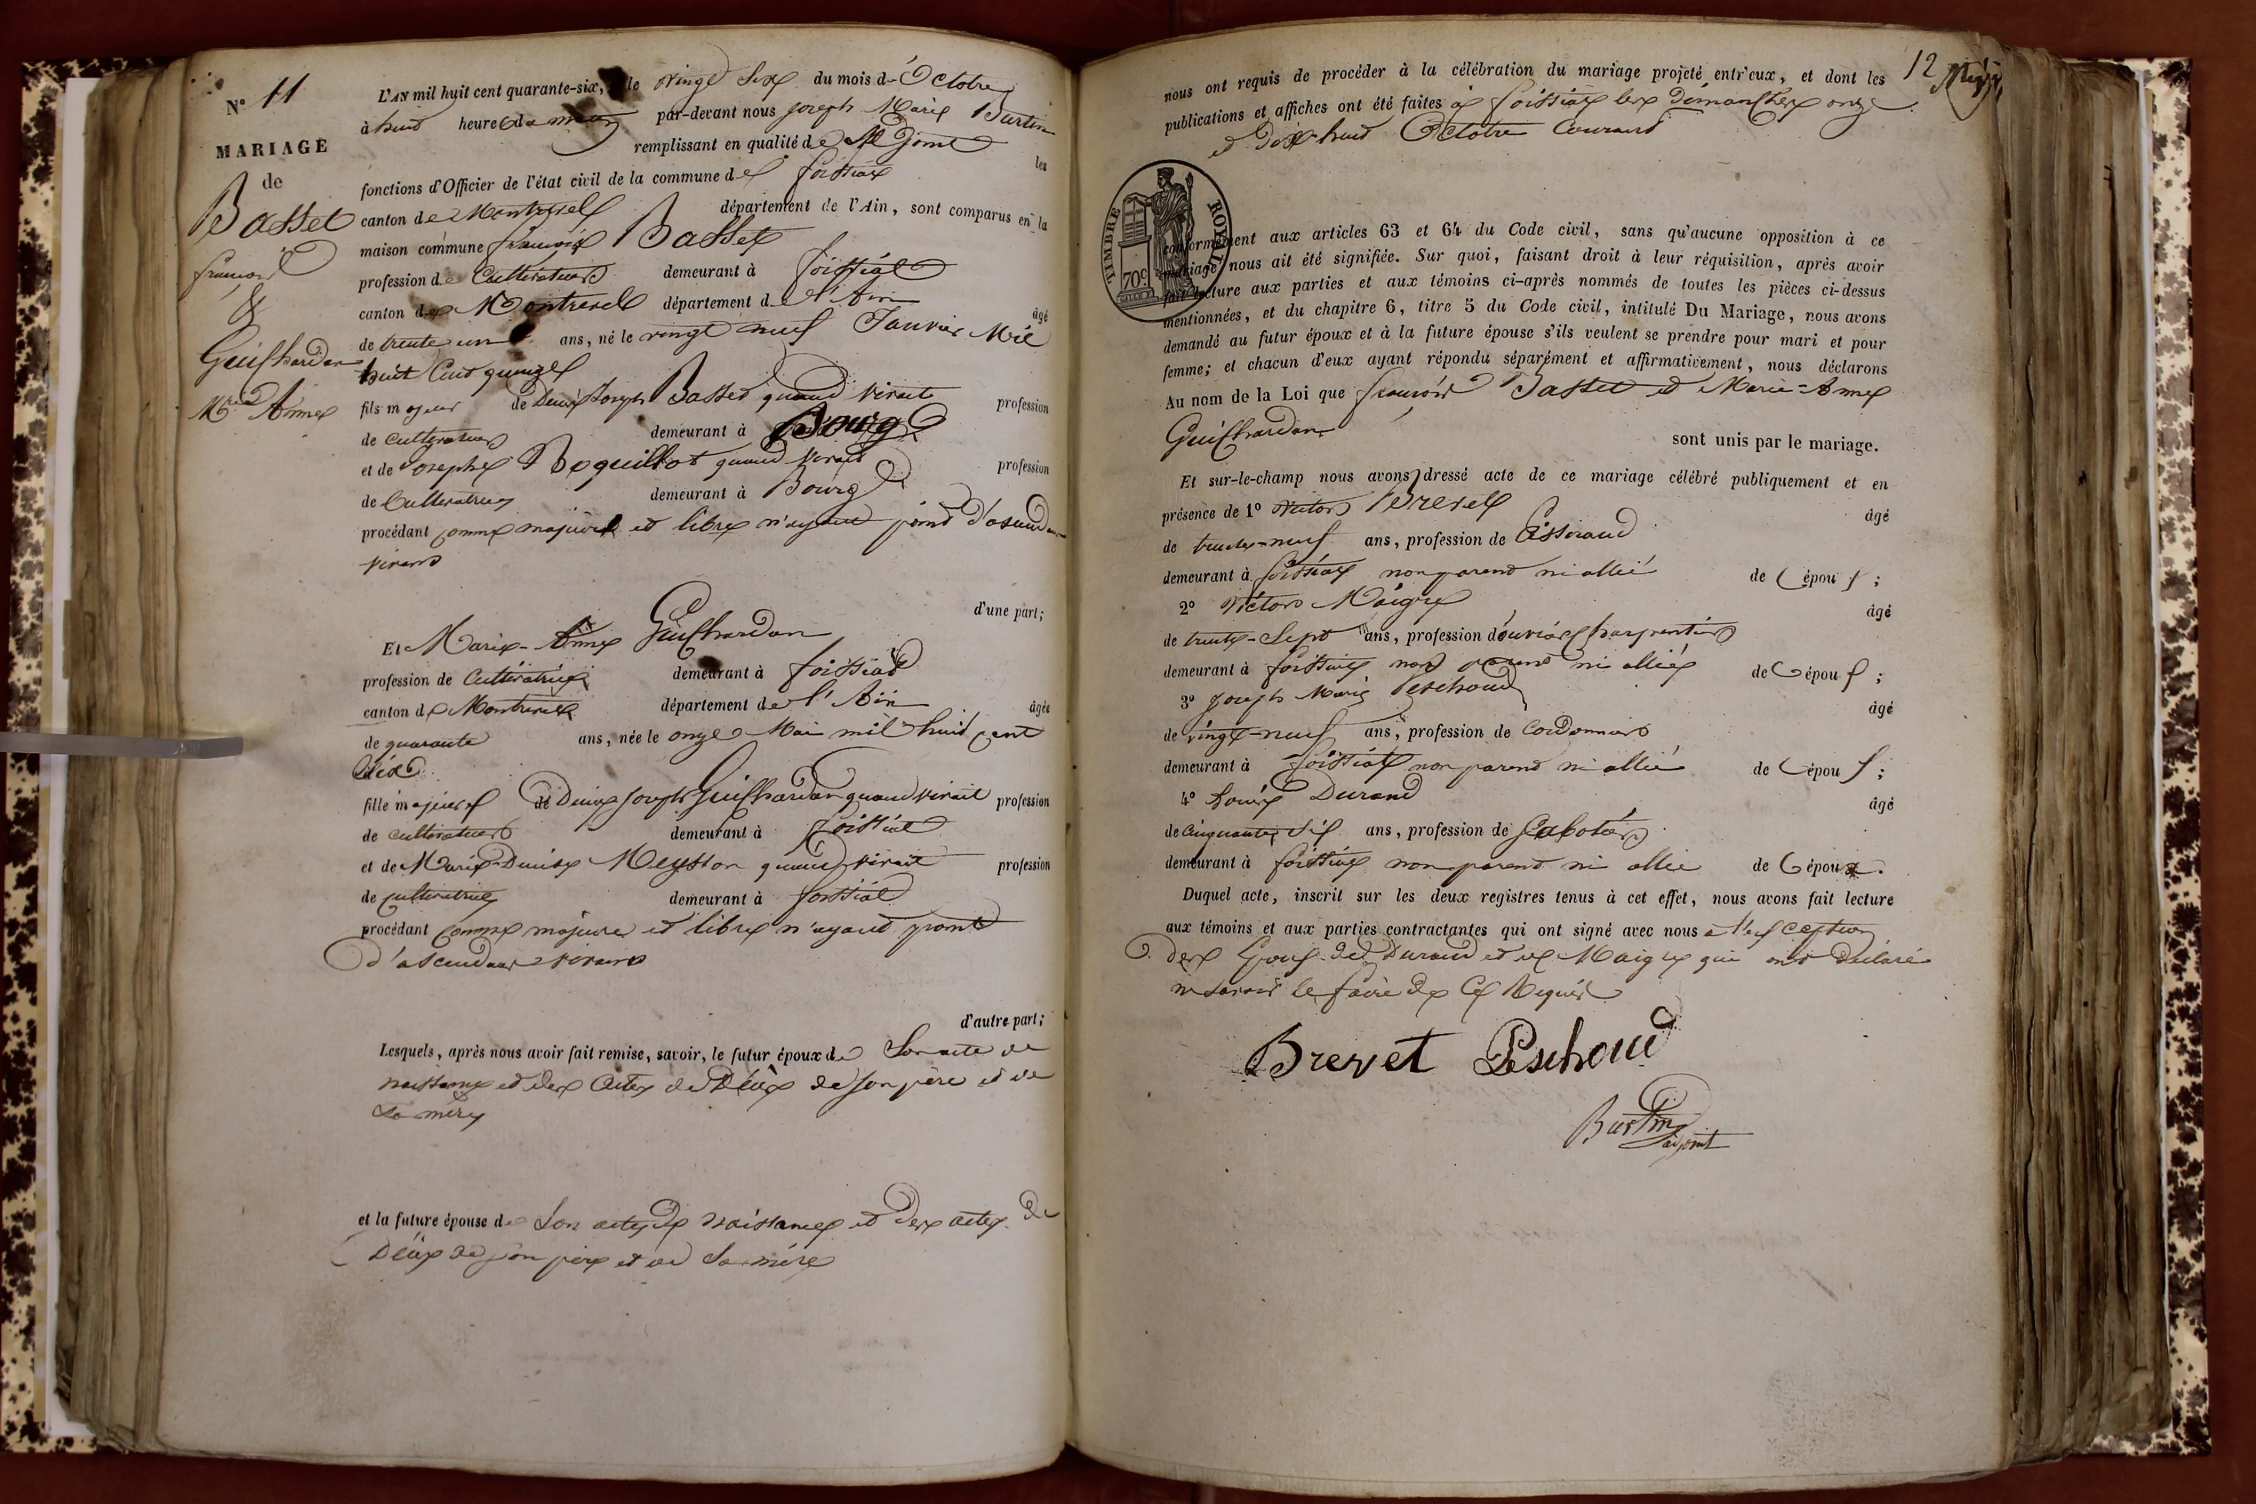 N° 11
MARIAGE
de
Basset
françois
&
Guichardan
M.ie Anne
L'AN mil huit cent quarante-six, le vingt Six du mois d'Octobre
à huit heures du matin par-devant nous joseph Marie Burtin
remplissant en qualité de Adjoint les
fonctions d'Officier de l'état civil de la commune de foissiat
canton de Montrevel département de l'Ain, sont comparus en la
maison commune françois Basset
profession de Cultivateur demeurant à foissiat
canton de Montrevel département de l'Ain âgé
de trente un ans, né le vingt neuf Janvier Mil
huit Cent quinze
fils majeur de Denis Joseph Basset quand vivait profession
de cultivateur demeurant à Bourg
et de Josephe Roquillot quand vivait profession
de Cultivatrice demeurant à Bourg
procédant comme majeur et libre n'ayant point d'ascendans
vivans
d'une part;
Et Marie-Anne Guichardan
profession de Cultivatrice demeurant à foissiat
canton de Montrevel département de l'Ain âgée
de quarante ans, née le onze Mai mil huit cent
Six
fille majeure de Denis Joseph Guichardan quand vivait profession
de cultivateur demeurant à foissiat
et de Marie Denise Meysson quand vivait profession
de cultivatrice demeurant à foissiat
procédant comme majeure et libre n'ayant point
d'ascendans vivans
d'autre part;
Lesquels, après nous avoir fait remise, savoir, le futur époux de Son acte de
naissance et des actes de Décès de son père et de
Sa mère
et la future épouse de Son acte de naissance et des actes de
Décès de son père et de Sa mère
12
nous ont requis de procéder à la célébration du mariage projeté entr'eux, et dont les
publications et affiches ont été faites à foissiat les dimanches onze
et dix-huit Octobre Courant
TIMBRE ROYAL
70c.
conformément aux articles 63 et 64 du Code civil, sans qu'aucune opposition à ce
mariage nous ait été signifiée. Sur quoi, faisant droit à leur réquisition, après avoir
fait lecture aux parties et aux témoins ci-après nommés de toutes les pièces ci-dessus
mentionnées, et du chapitre 6, titre 5 du Code civil, intitulé Du Mariage, nous avons
demandé au futur époux et à la future épouse s'ils veulent se prendre pour mari et pour
femme; et chacun d'eux ayant répondu séparément et affirmativement, nous déclarons
Au nom de la Loi que françois Basset et Marie-Anne
Guichardan
sont unis par le mariage.
Et sur-le-champ nous avons dressé acte de ce mariage célébré publiquement et en
présence de 1° Victor Brevet âgé
de trente-neuf ans, profession de Tisserand
demeurant à foissiat non parent ni allié de l'épou x;
2° Victor Maigre âgé
de trente-Sept ans, profession d'ouvrier charpentier
demeurant à foissiat non parent ni allié de l'épou x;
3° joseph Marie Peschoud âgé
de vingt-neuf ans, profession de Cordonnier
demeurant à foissiat non parent ni allié de l'épou x;
4° Louis Durand âgé
de cinquante Six ans, profession de Sabotier
demeurant à foissiat non parent ni allié de l'époux.
Duquel acte, inscrit sur les deux registres tenus à cet effet, nous avons fait lecture
aux témoins et aux parties contractantes qui ont signé avec nous à l'exception
des Epoux de Durand et de Maigre qui ont déclaré
ne savoir le faire de Ce Requis
Brevet Peschoud
Burtin
adjoint